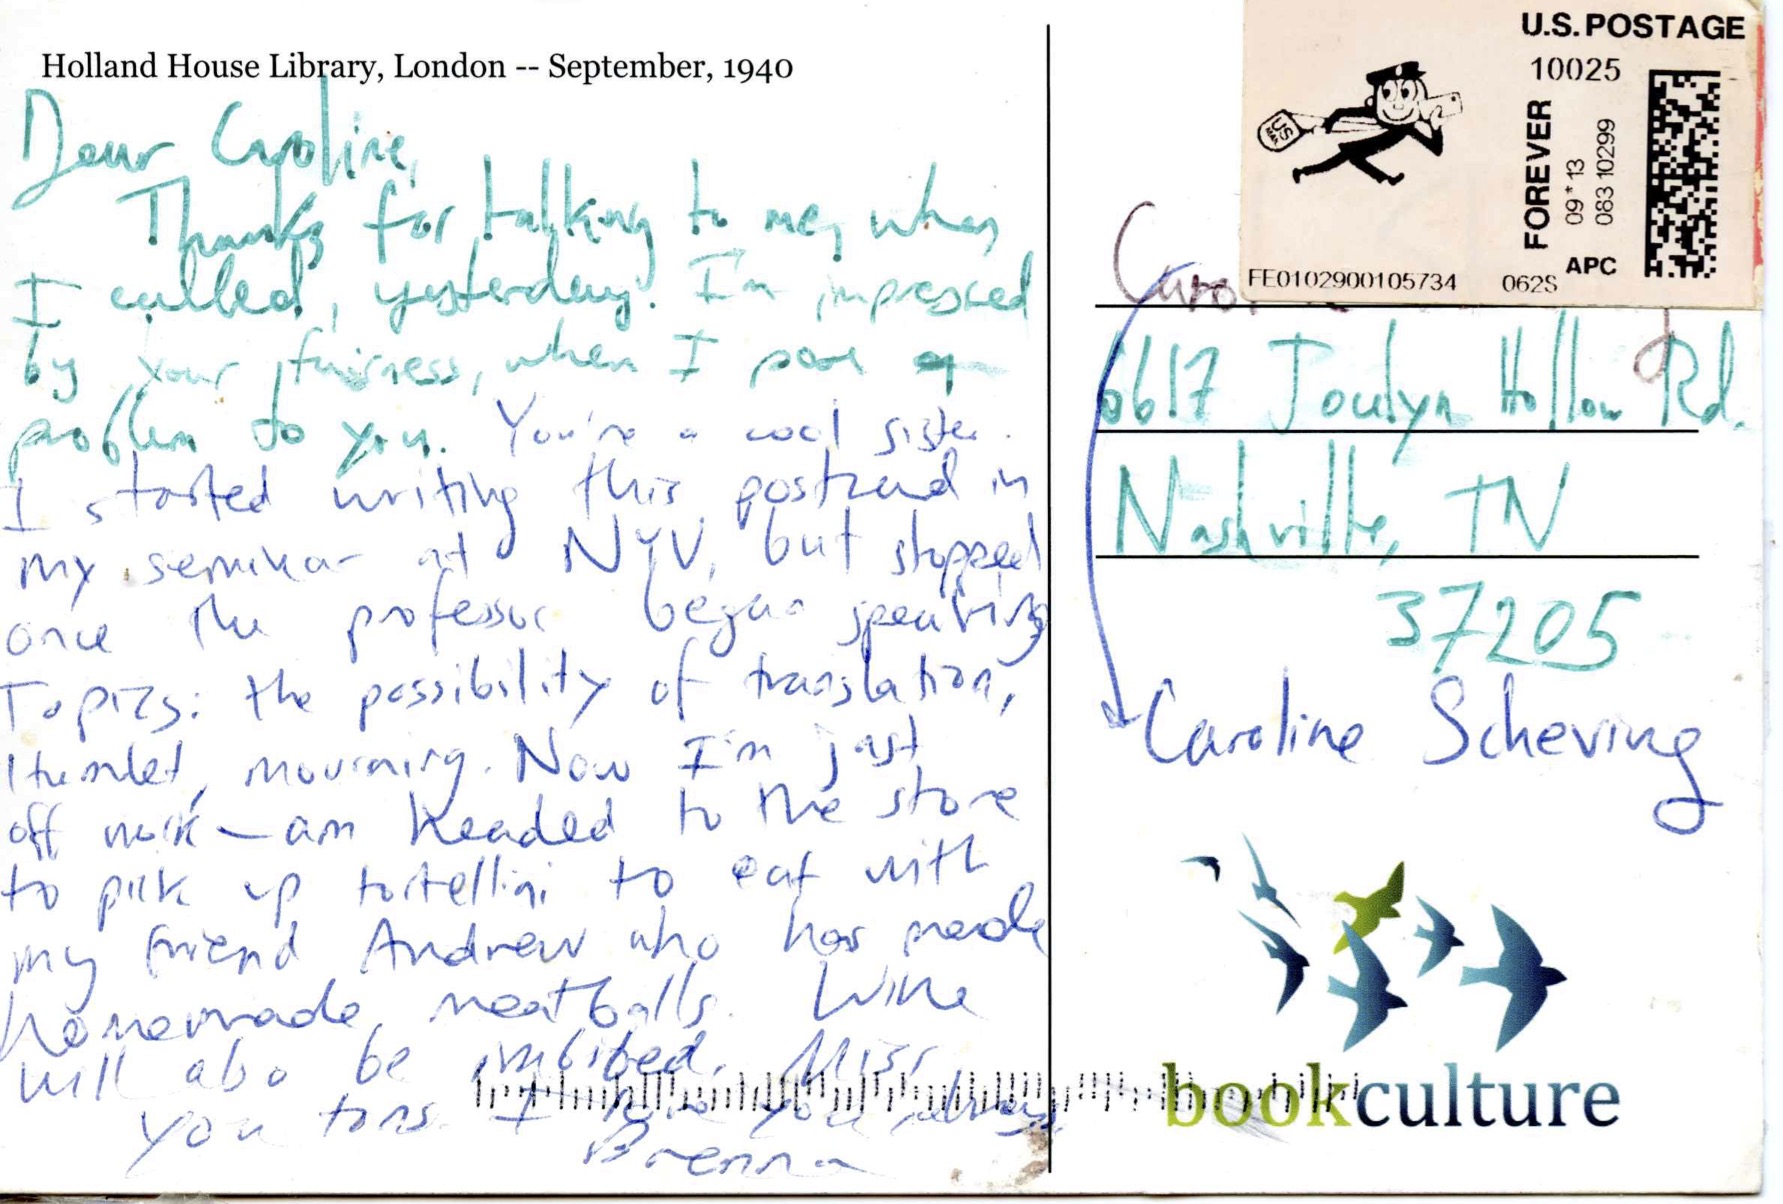 Holland House Library, London -- September, 1940
Dear Caroline,
Thanks for talking to me, when
I called, yesterday. I'm impressed
by your fairness, when I pose a
problem to you. You're a cool sister.
I started writing this postcard in
my seminar at NYU, but stopped
once the professor began speaking
Topics: the possibility of translation,
Hamlet, mourning. Now I'm just
off work — am headed to the store
to pick up tortellini to eat with
my friend Andrew who has made
homemade meatballs. Wine
will also be imbibed. Miss
you tons. I love you always,
Brenna
U.S. POSTAGE
10025
FOREVER
09*13
083 10299
APC
US MAIL
FE0102900105734
062S
Caro
6617 Jocelyn Hollow Rd.
Nashville, TN
37205
Caroline Scheving
bookculture